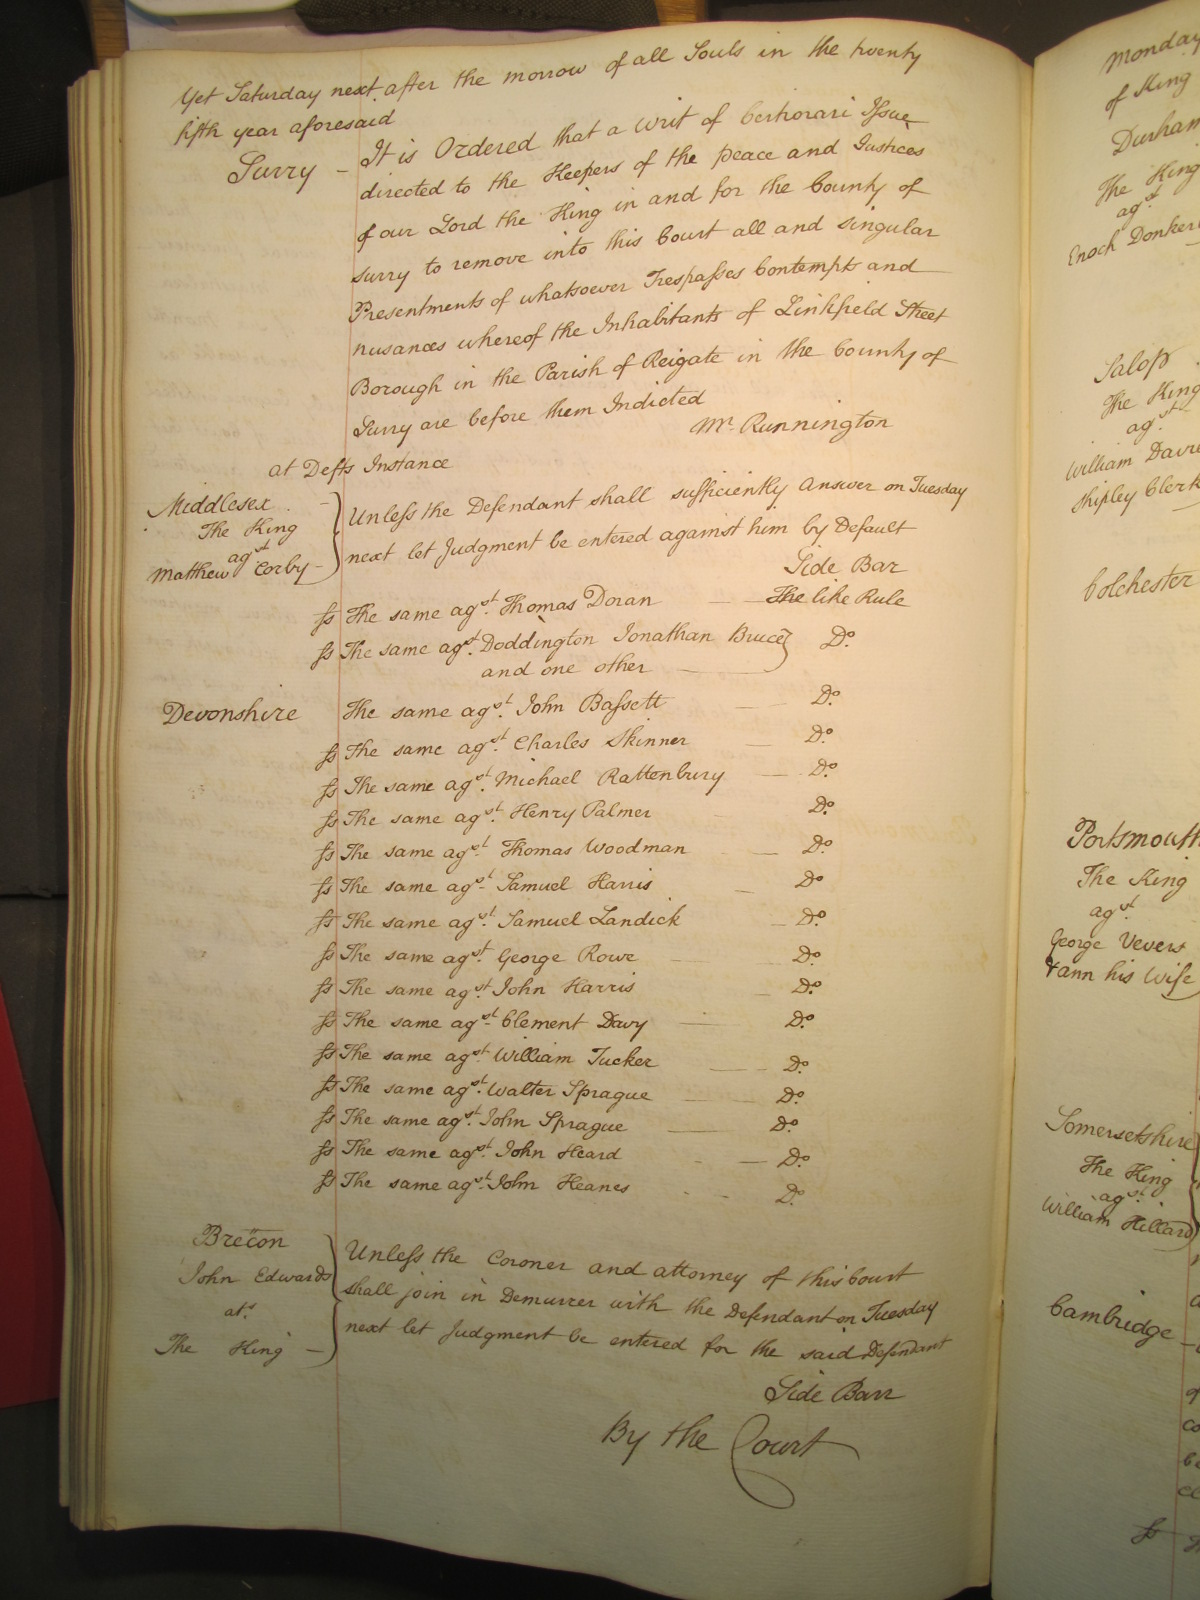 Yet Saturday next after the morrow of all Souls in the twenty
fifth year aforesaid
Surry - It is Ordered that a writ of Certiorari Issue
directed to the Keepers of the peace and Justices
of our Lord the King in and for the County of
Surry to remove into this Court all and singular
Presentments of whatsoever Trespasses Contempts and
nusances whereof the Inhabitants of Linkfield Street
Borough in the Parish of Reigate in the County of
Surry are before them Indicted
Mr. Runnington
at Defts Instance
Middlesex
The King
agst
Matthew Corby -
Unless the Defendant shall sufficiently Answer on Tuesday
next let Judgment be entered against him by Default
Side Bar
ss The same agst. Thomas Doran — The like Rule
ss The same agst. Doddington Jonathan Bruce Do.
and one other
Devonshire The same agst. John Bassett Do.
ss The same agst. Charles Skinner Do.
ss The same agst. Michael Rattenbury Do.
ss The same agst. Henry Palmer Do.
ss The same agst. Thomas Woodman Do.
ss The same agst. Samuel Harris Do.
ss The same agst. Samuel Landick Do.
ss The same agst. George Rowe Do.
ss The same agst. John Harris Do.
ss The same agst. Clement Davy Do.
ss The same agst. William Tucker Do.
ss The same agst. Walter Sprague Do.
ss The same agst. John Sprague Do.
ss The same agst. John Heard Do.
ss The same agst. John Heanes Do.
Brecon
John Edwards
ats.
The King -
Unless the Coroner and attorney of this Court
shall join in Demurrer with the Defendant on Tuesday
next let Judgment be entered for the said Defendant
Side Barr
By the Court
Monday
of King
Durham
The King
agst
Enoch
Salop
The King
agst.
William
Shipley Clerk
Colchester
Portsmouth
The King
agst.
George Vevers
& ann his Wife
Somersetshire
The King
agst.
William Hillard
Cambridge -
ss